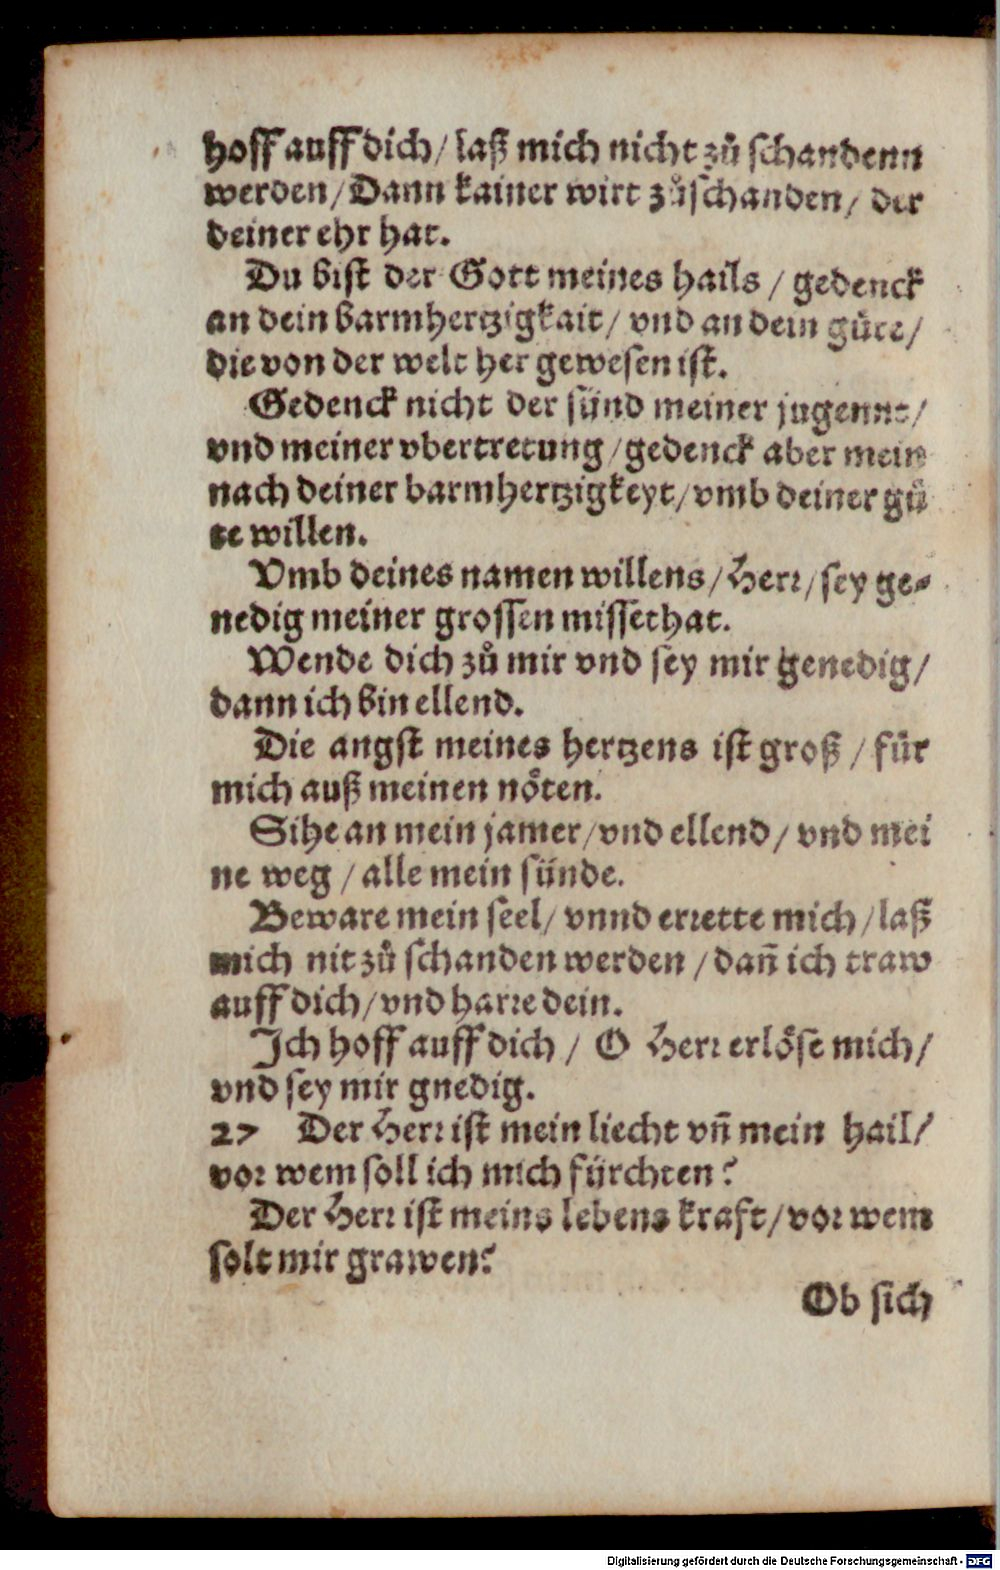 hoff auff dich/ laß mich nicht zů schandenn
werden/ Dann kainer wirt zůschanden/ der
deiner ehr hat.
Du bist der Gott meines hails / gedenck
an dein barmhertzigkait/ vnd an dein güte/
die von der welt her gewesen ist.
Gedenck nicht der sünd meiner jugennt/
vnd meiner vbertretung/ gedenck aber mein
nach deiner barmhertzigkeyt/ vmb deiner gü
te willen.
Vmb deines namen willens/ Herr/ sey ge-
nedig meiner grossen missethat.
Wende dich zů mir vnd sey mir genedig/
dann ich bin ellend.
Die angst meines hertzens ist groß / für
mich auß meinen nöten.
Sihe an mein jamer/ vnd ellend/ vnd mei
ne weg / alle mein sünde.
Beware mein seel/ vnnd errette mich/ laß
mich nit zů schanden werden / dañ ich traw
auff dich/ vnd harre dein.
Ich hoff auff dich / O Herr erlöse mich/
vnd sey mir gnedig.
27 Der Herr ist mein liecht vñ mein hail/
vor wem soll ich mich fürchten?
Der Herr ist meins lebens kraft/ vor wem
solt mir grawen?
Ob sich
Digitalisierung gefördert durch die Deutsche Forschungsgemeinschaft - DFG